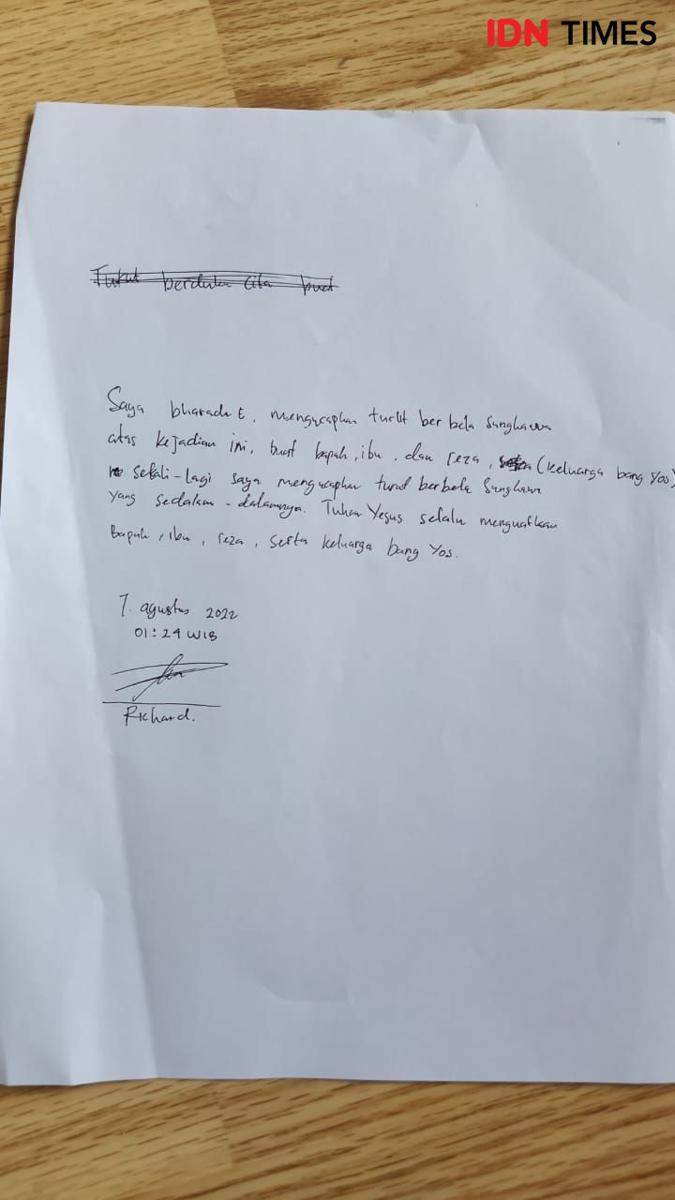 IDN TIMES
Turut berduka cita buat
Saya bharada E, mengucapkan turut ber bela sungkawa
atas kejadian ini, buat bapak, ibu, dan reza, (keluarga bang Yos)
sekali-lagi saya mengucapkan turut berbela sungkawa
yang sedalam-dalamnya. Tuhan Yesus selalu menguatkan
Bapak, ibu, reza, serta keluarga bang Yos.
7. agustus 2022
01:24 WIB
Richard.